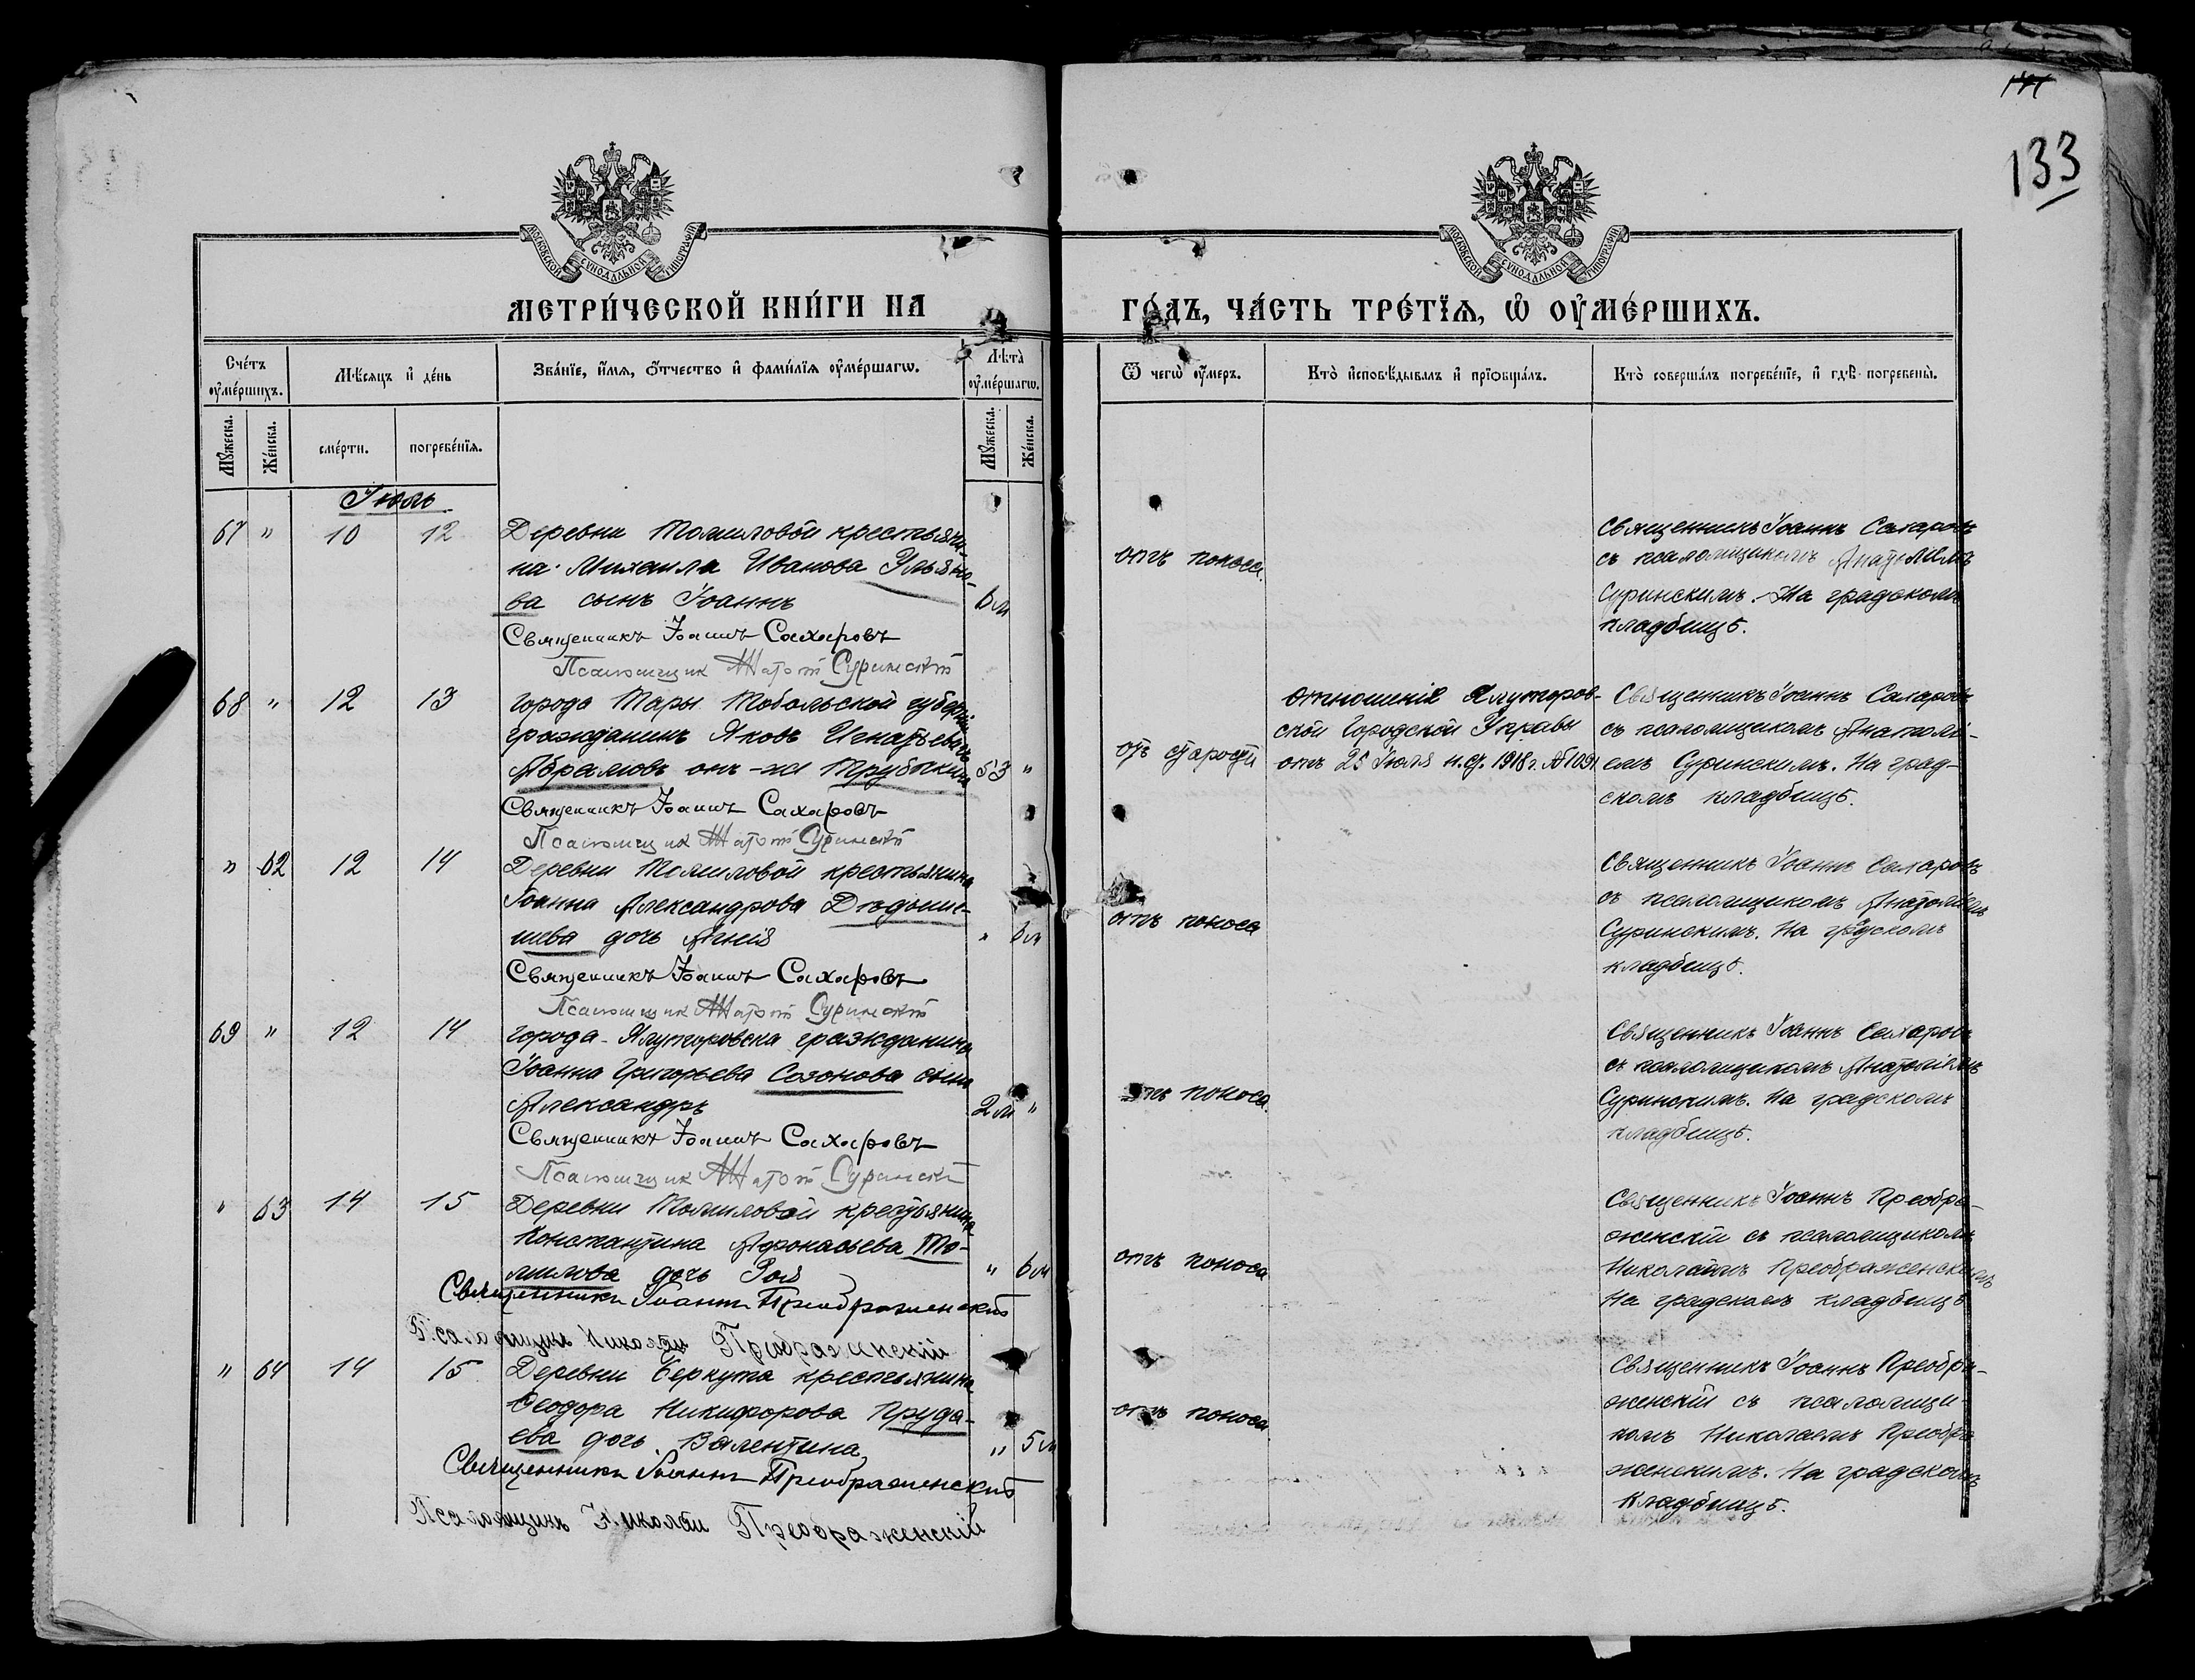 133
МОСКОВСКОЙ СѴНОДАЛЬНОЙ ТИПОГРАФІИ
МОСКОВСКОЙ СѴНОДАЛЬНОЙ ТИПОГРАФІИ
МЕТРИ́ЧЕСКОЙ КНИ́ГИ НА
ГО́ДЪ, ЧА́СТЬ ТРЕ́ТЇѦ, Ѡ҆ ОУ҆МЕ́РШИХЪ.
Сче́тъ оу҆ме́ршихъ.
Мѣ́сяцъ и҆ де́нь
Зва́нїе, и҆́мѧ, ѻ҆́тчество и҆ фами́лїѧ оу҆ме́ршагѡ.
Лѣ́та оу҆ме́ршагѡ.
Ѿ чегѡ̀ оу҆́меръ.
Кто̀ и҆сповѣ́дывалъ и҆ прїѡбща́лъ.
Кто̀ соверша́лъ погребе́нїе, и҆ гдѣ̀ погребены̀.
Мꙋ́жеска.
Же́нска.
сме́рти.
погребе́нїѧ.
Мꙋ́жеска.
Же́нска.
Іюль
67 " 10 12 Деревни Томиловой крестьяни-
на Михаила Иванова Ульяно-
ва сынъ Іоаннъ 6 м
Священникъ Іоаннъ Сахаровъ
Псаломщик Суринскій
отъ поноса.
Священникъ Іоаннъ Сахаровъ
съ псаломщикомъ Анатоліемъ
Суринскимъ. На градскомъ
кладбищѣ.
68 " 12 13 города Тары Тобольской губерніи
гражданинъ Яковъ Игнатьевичъ
Абрамовъ онъ-же Трубакинъ 53 "
Священникъ Іоаннъ Сахаровъ
Псаломщик Суринскій
отъ старости
отношенія Ялуторов-
ской Городской Управы
отъ 25 Іюля н. ст. 1918 г. № 1091
Священникъ Іоаннъ Сахаровъ
съ псаломщикомъ Анатолі-
емъ Суринскимъ. На град-
скомъ кладбищѣ.
" 62 12 14 Деревни Томиловой крестьянина
Іоанна Александрова
шева дочь Агнія " 6 м
Священникъ Іоаннъ Сахаровъ
Псаломщик Суринскій
отъ поноса
Священникъ Іоаннъ Сахаровъ
съ псаломщикомъ Анатоліемъ
Суринскимъ. На градскомъ
кладбищѣ.
69 " 12 14 города Ялуторовска гражданина
Іоанна Григорьева Созонова сынъ
Александръ 2 м "
Священникъ Іоаннъ Сахаровъ
Псаломщик Суринскій
отъ поноса.
Священникъ Іоаннъ Сахаровъ
съ псаломщикомъ Анатоліемъ
Суринскимъ. На градскомъ
кладбищѣ.
" 63 14 15 Деревни Томиловой крестьянина
Константина Афонасьева То-
милова дочь Зоя " 6 м
Священникъ Іоаннъ Преображенскій
Псаломщикъ Николай Преображенскій
отъ поноса
Священникъ Іоаннъ Преобра-
женскій съ псаломщикомъ
Николаемъ Преображенскимъ
На градскомъ кладбищѣ
" 64 14 15 Деревни Беркута крестьянина
Ѳеодора Никифорова Пруда-
ева дочь Валентина " 5 м
Священникъ Іоаннъ Преображенскій
Псаломщикъ Николай Преображенскій
отъ поноса
Священникъ Іоаннъ Преобра-
женскій съ псаломщи-
комъ Николаемъ Преобра-
женскимъ. На градскомъ
кладбищѣ.